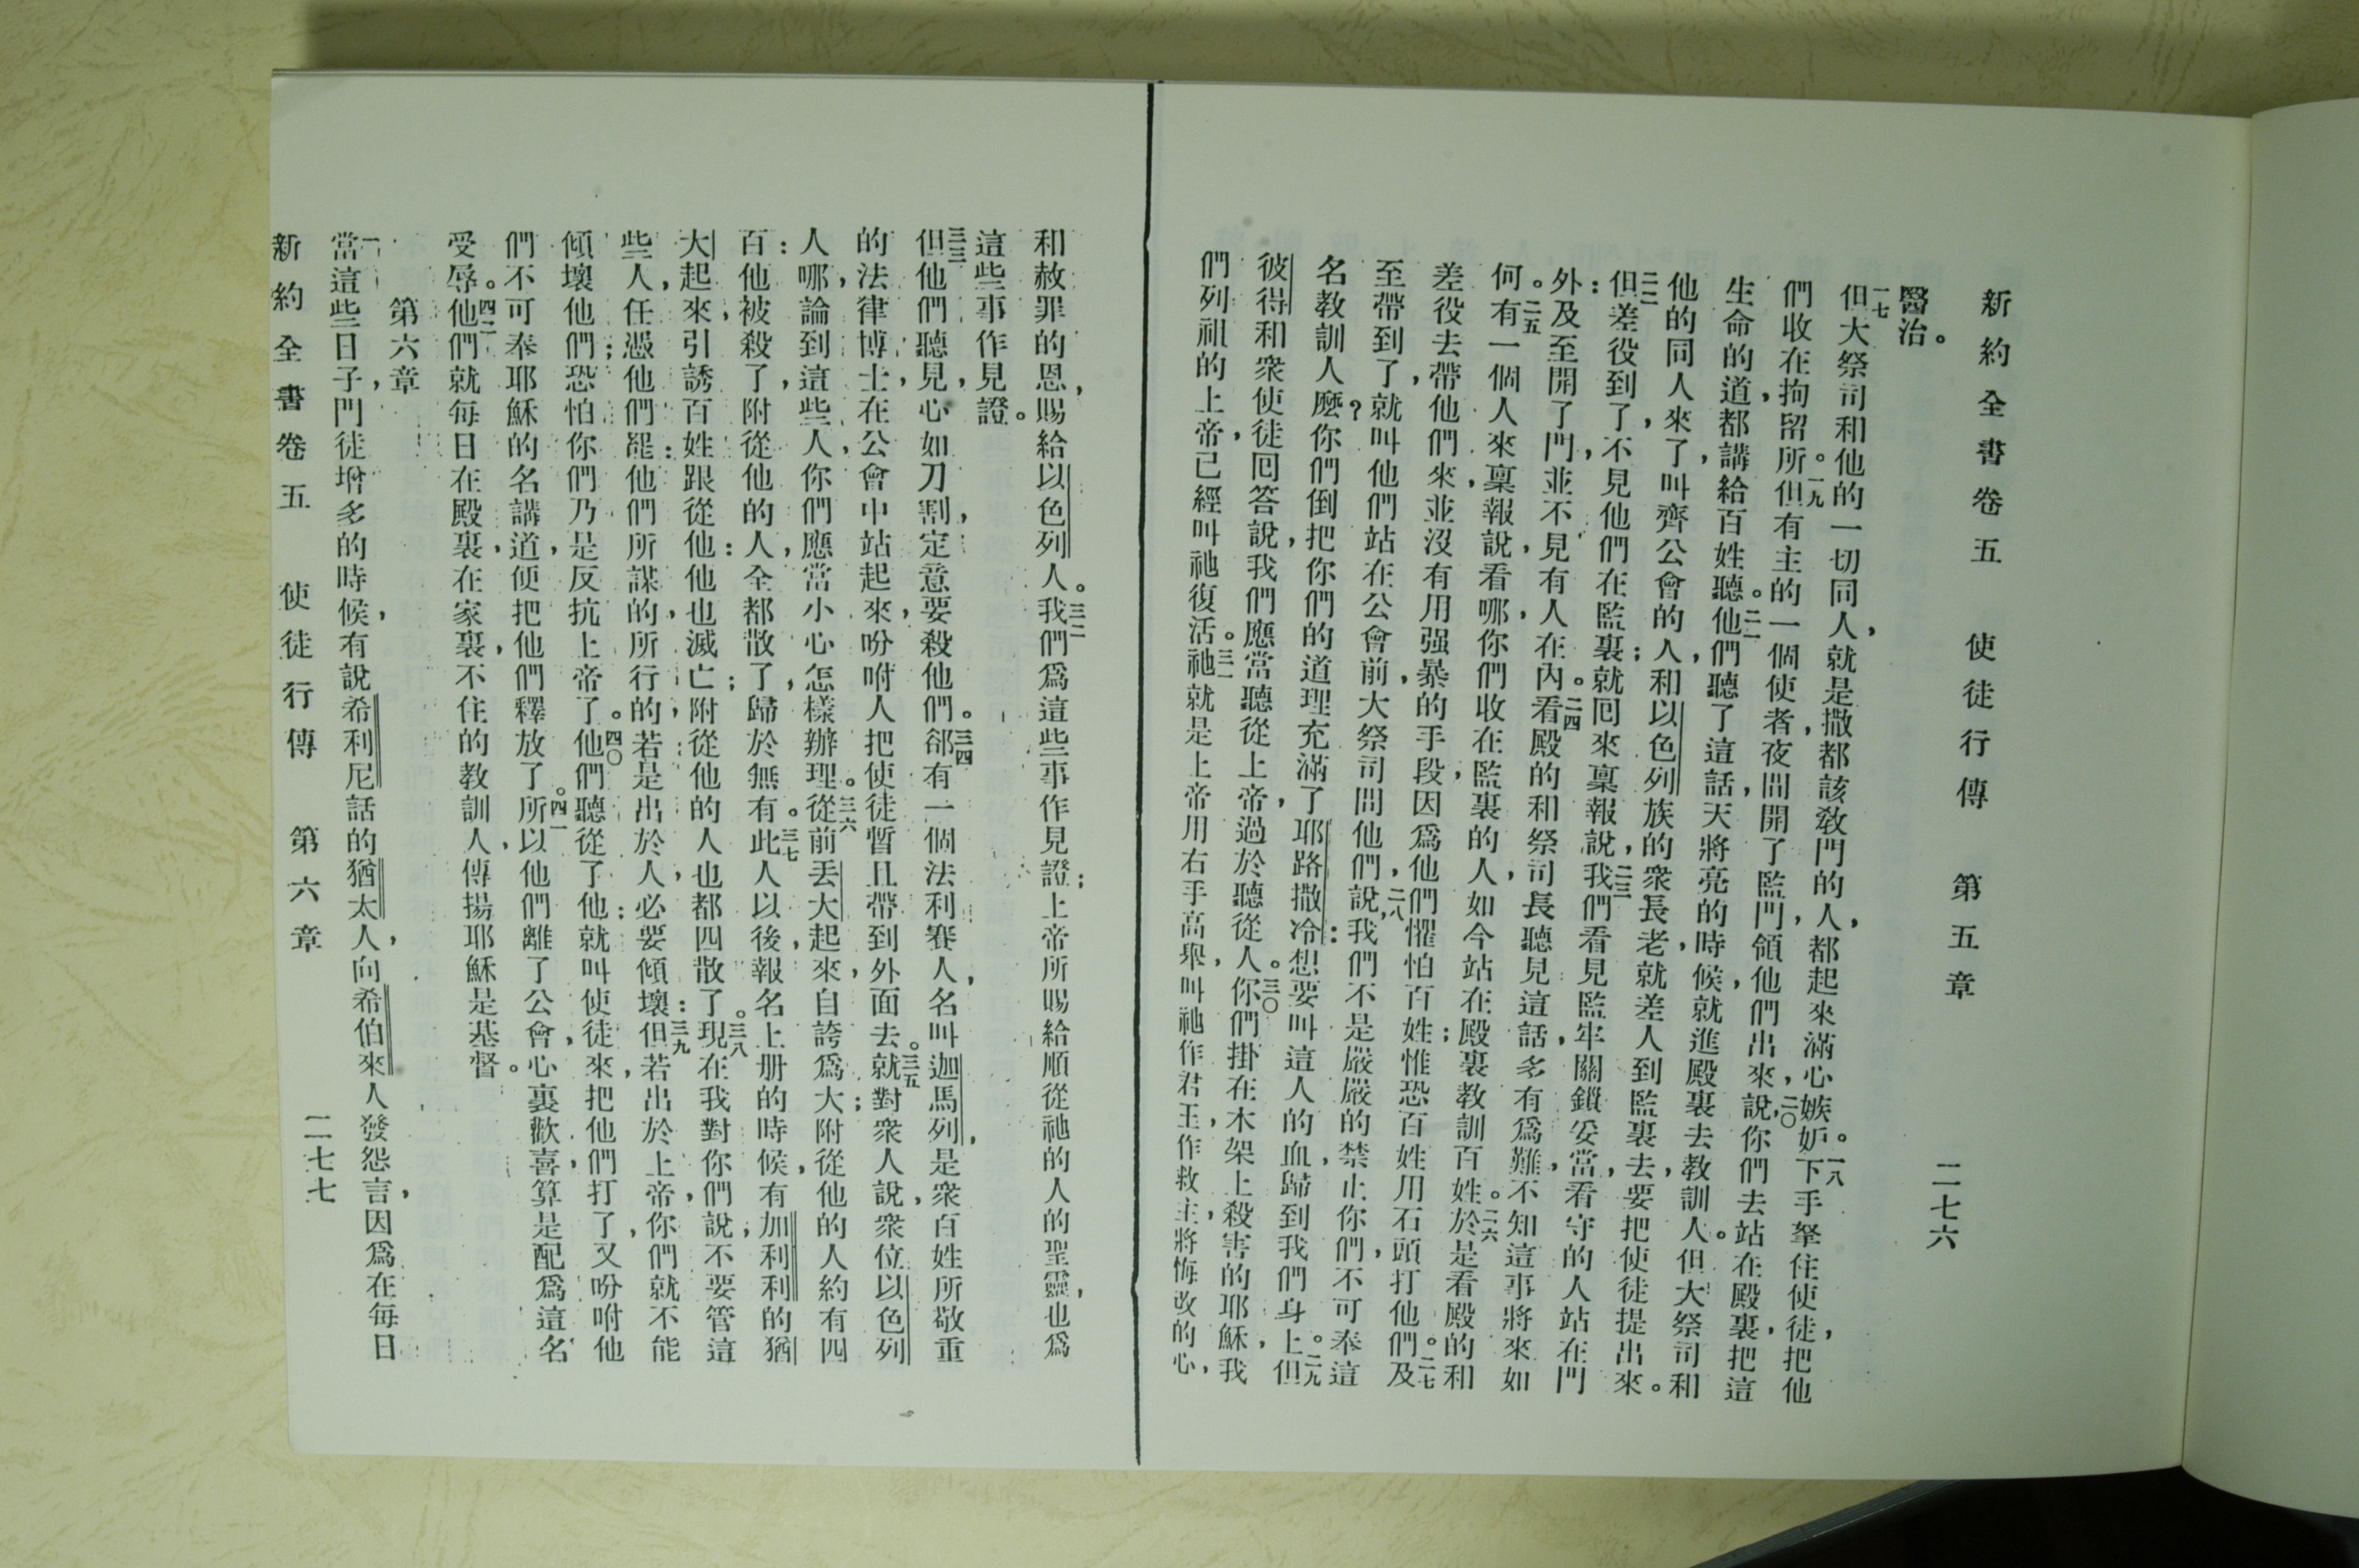 新約全書卷五　使徒行傳　第五章　二七六
醫治。
一七但大祭司和他的一切同人，就是撒都該敎門的人，都起來滿心嫉妒。一八下手拏住使徒，把他
們收在拘留所。一九但有主的一個使者，夜間開了監門，領他們出來，說，二〇你們去站在殿裏，把這
生命的道，都講給百姓聽。二一他們聽了這話，天將亮的時候，就進殿裏去教訓人。但大祭司和
他的同人來了，叫齊公會的人，和以色列族的衆長老，就差人到監裏去，要把使徒提出來。
二二但差役到了，不見他們在監裏；就回來稟報說，二三我們看見監牢關鎖妥當，看守的人站在門
外：及至開了門，並不見有人在內。二四看殿的和祭司長聽見這話，多有爲難，不知這事將來如
何。二五有一個人來稟報說，看哪，你們收在監裏的人，如今站在殿裏教訓百姓。二六於是看殿的和
差役去帶他們來，並沒有用强暴的手段，因爲他們懼怕百姓；惟恐百姓用石頭打他們。二七及
至帶到了，就叫他們站在公會前，大祭司問他們，說，二八我們不是嚴嚴的禁止你們，不可奉這
名教訓人麼？你們倒把你們的道理充滿了耶路撒冷：想要叫這人的血，歸到我們身上。二九但
彼得和衆使徒回答說，我們應當聽從上帝，過於聽從人。三〇你們掛在木架上殺害的耶穌，我
們列祖的上帝，已經叫祂復活。三一祂就是上帝用右手高舉，叫祂作君王，作救主，將悔改的心，
和赦罪的恩，賜給以色列人。三二我們爲這些事作見證；上帝所賜給順從祂的人的聖靈，也爲
這些事作見證。
三三但他們聽見，心如刀割，定意要殺他們。三四郤有一個法利賽人，名叫迦馬列，是衆百姓所敬重
的法律博士，在公會中站起來，吩咐人把使徒暫且帶到外面去。三五就對衆人說，衆位以色列
人哪，論到這些人，你們應當小心，怎樣辦理。三六從前丟大起來，自誇爲大；附從他的人約有四
百：他被殺了，附從他的人，全都散了，歸於無有。三七此人以後，報名上册的時候，有加利利的猶
大起來，引誘百姓跟從他：他也滅亡；附從他的人也都四散了。三八現在我對你們說，不要管這
些人，任憑他們罷：他們所謀的，所行的，若是出於人，必要傾壞：三九但若出於上帝，你們就不能
傾壞他們；恐怕你們乃是反抗上帝了。四〇他們聽從了他：就叫使徒來，把他們打了，又吩咐他
們不可奉耶穌的名講道，便把他們釋放了。四一所以他們離了公會，心裏歡喜，算是配爲這名
受辱。四二他們就每日在殿裏，在家裏，不住的教訓人，傳揚耶穌是基督。
第六章
一當這些日子，門徒增多的時候，有說希利尼話的猶太人，向希伯來人發怨言，因爲在每日
新約全書卷五　使徒行傳　第六章　二七七